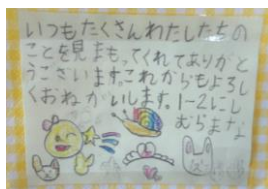 いつもたくさんわたしたちの
ことを見まもってくれてありがと
うございます。これからもよろし
くおねがいします。1-2にし
むらまな